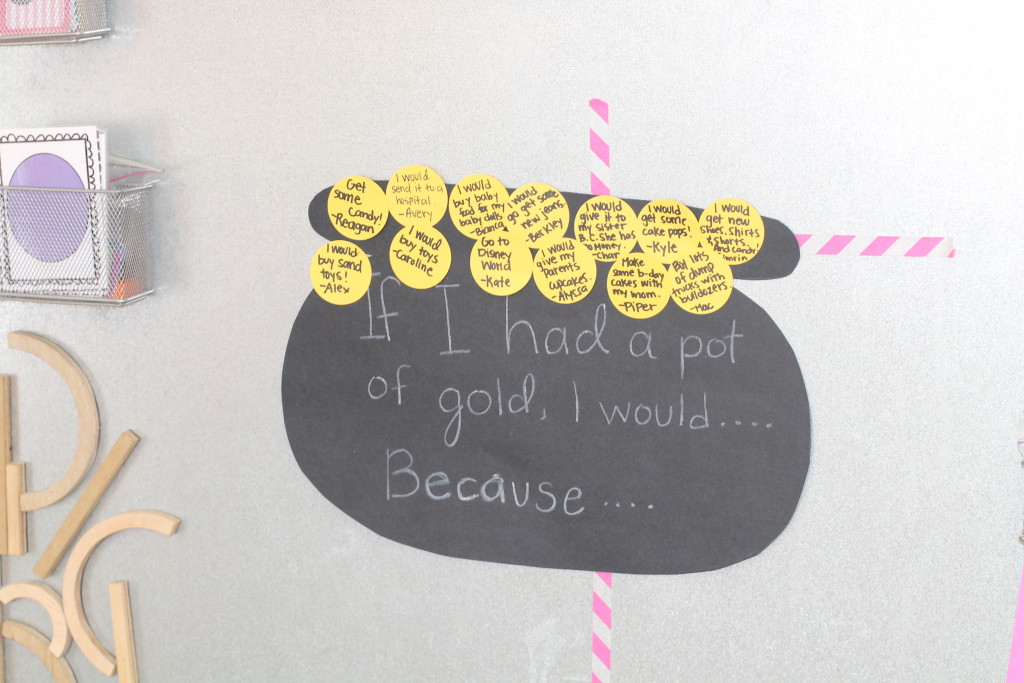 Get
some
Candy!
-Reagan
I would
send it to a
hospital.
-Avery
I would
buy baby
food for my
baby dolls
-Bianca
I would
go get some
new jeans.
-Berkley
I would
give it to
my sister
B.C. She has
no money.
-Char
I would
get some
cake pops!
-Kyle
I would
get new
shoes, shirts
& shorts.
And candy
I would
buy sand
toys!
-Alex
I would
buy toys
-Caroline
Go to
Disney
World
-Kate
I would
give my
parents
cupcakes
-Alyssa
Make
some b-day
cakes with
my mom.
-Piper
Buy lots
of dump
trucks with
bulldozers
-Mac
If I had a pot
of gold, I would....
Because....